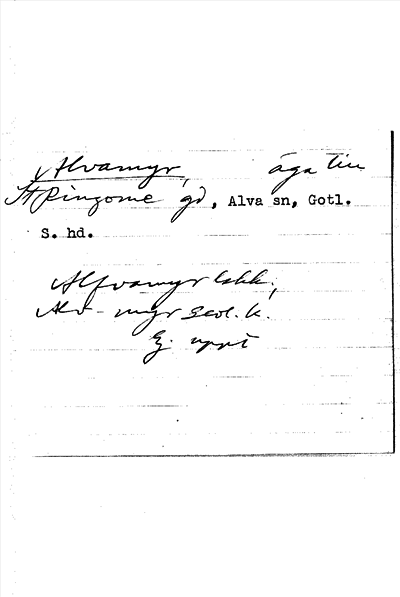 Alvamyr, äga till
St Ringome gd, Alva sn, Gotl.
S. hd.
Alfvamyr lskk;
Alv-myr geol. k.
Ej uppt